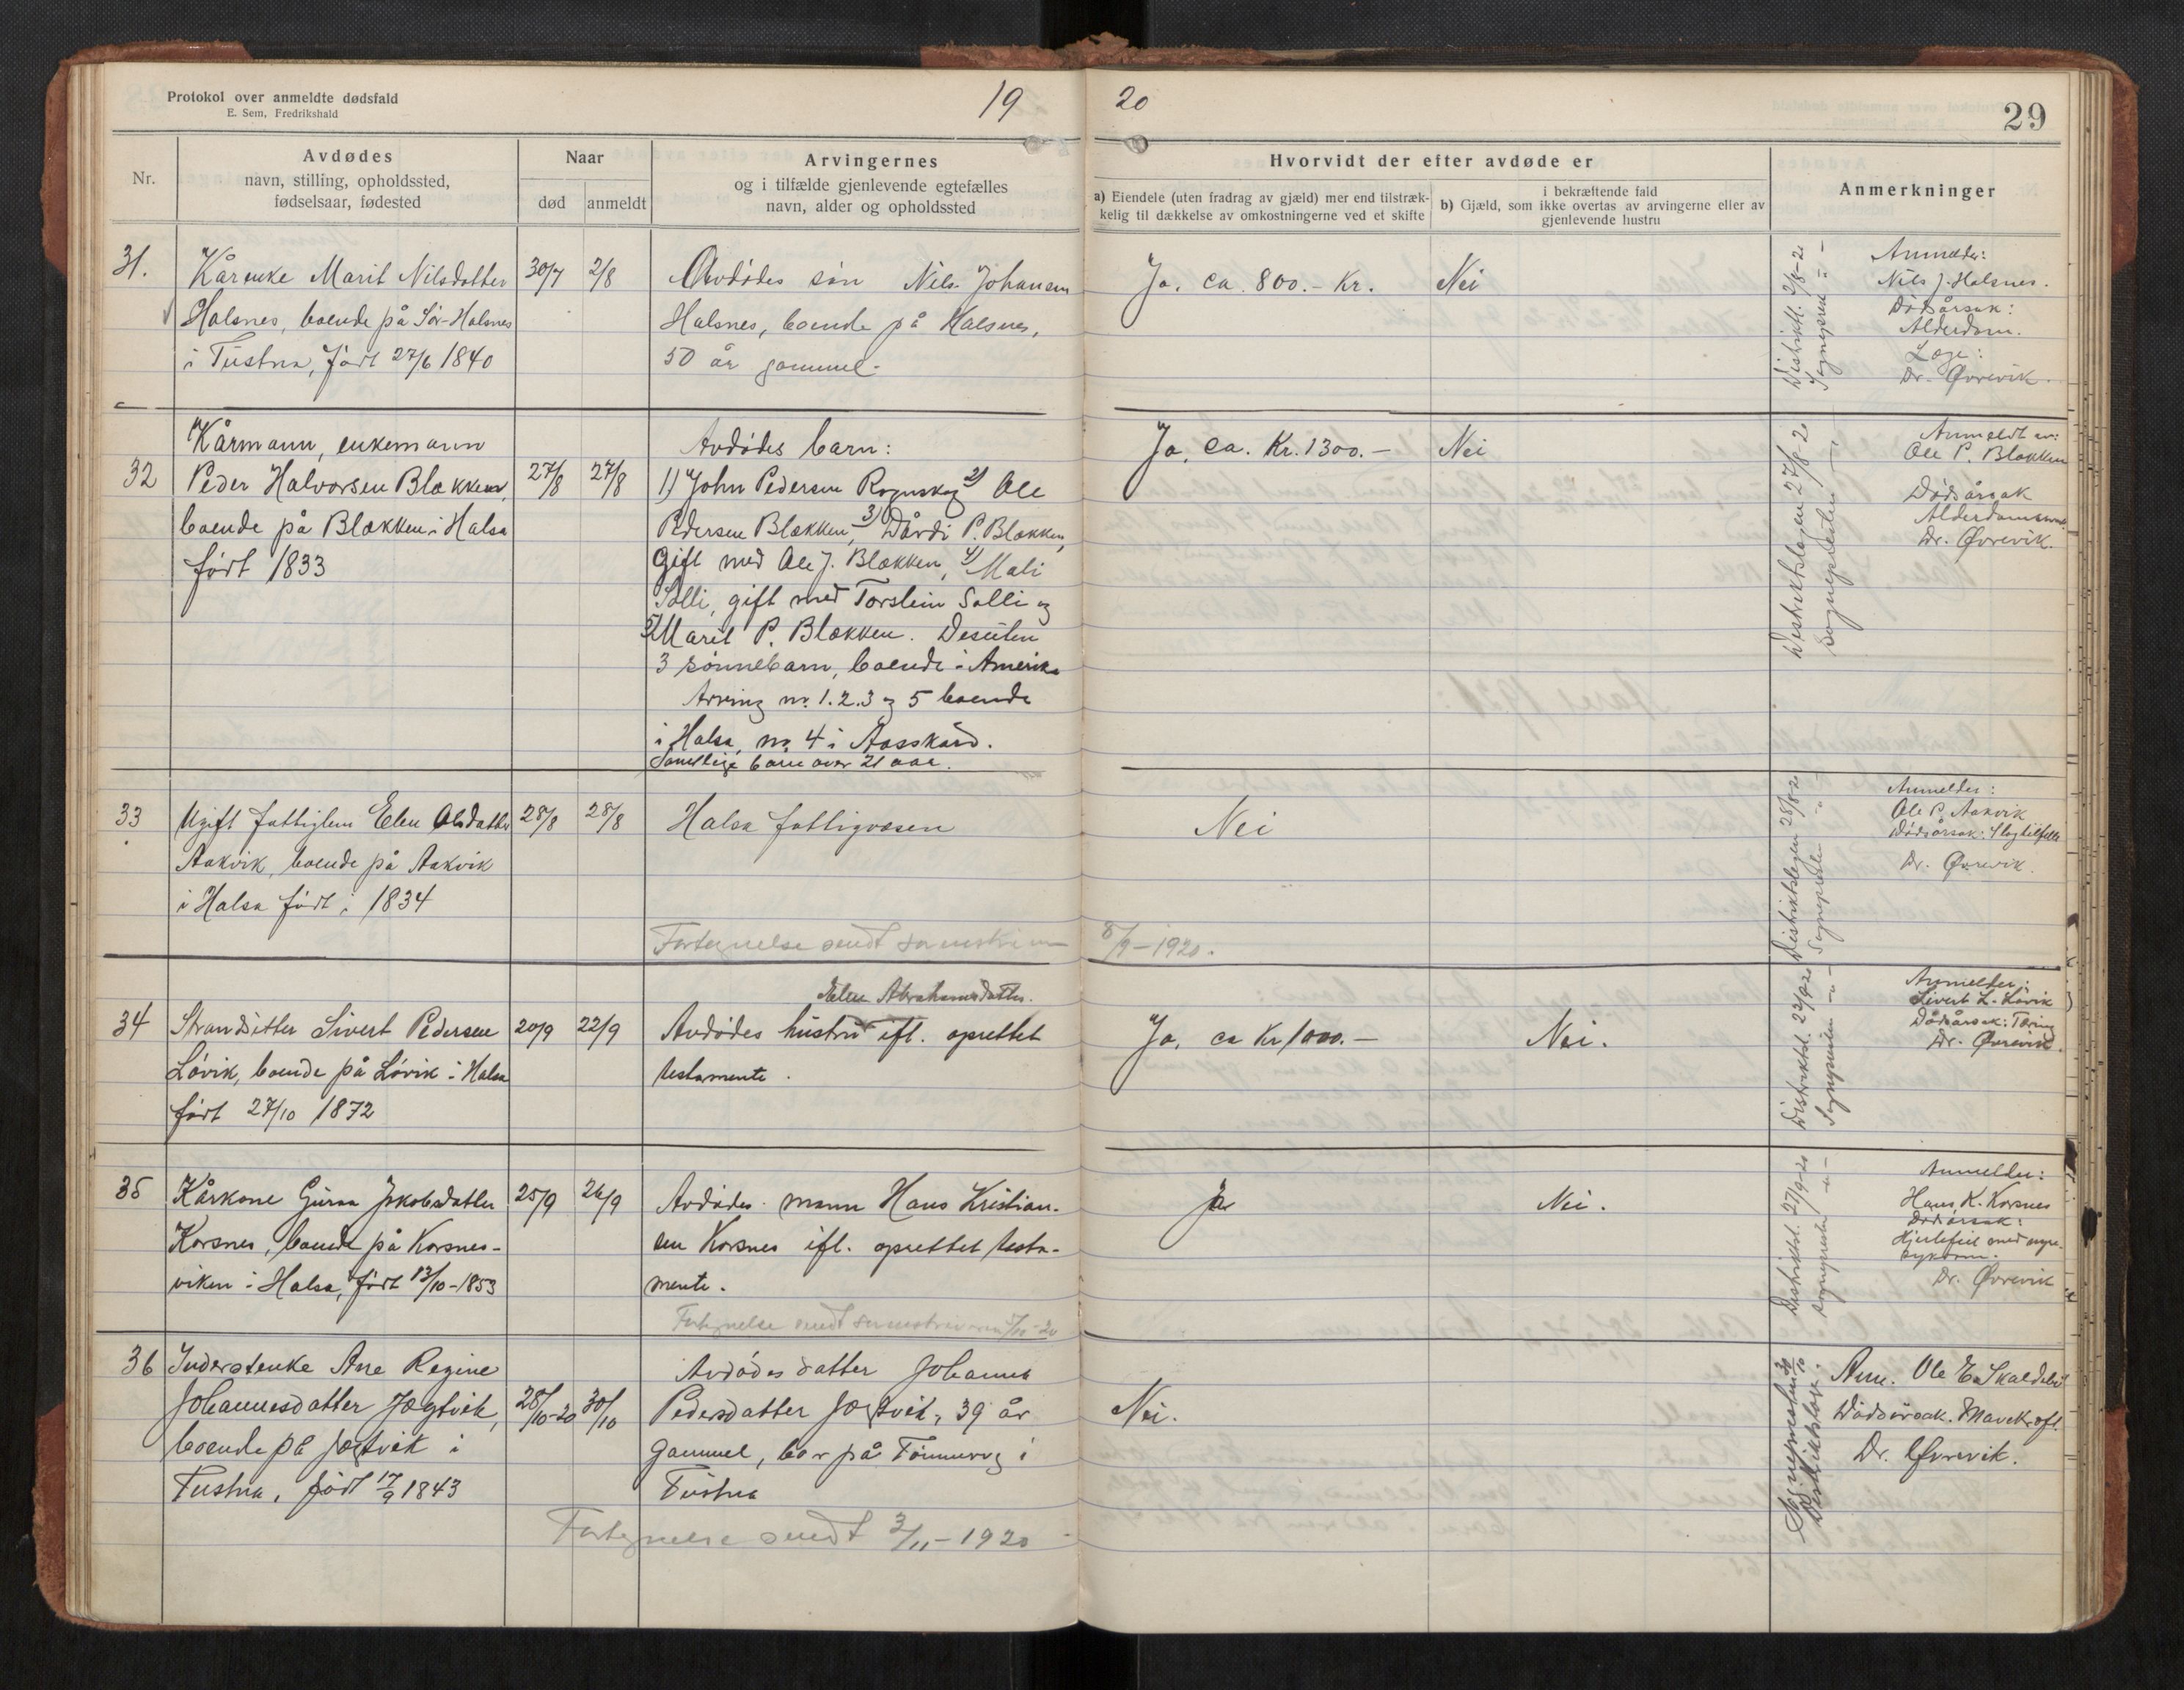 Protokol over anmeldte dødsfald
E. Sem, Fredrikshald
19
20
29
Nr.
Avdødes
navn, stilling, opholdssted,
fødselsaar, fødested
Naar
død
anmeldt
Arvingernes
og i tilfælde gjenlevende egtefælles
navn, alder og opholdssted
Hvorvidt der efter avdøde er
a) Eiendele (uten fradrag av gjæld) mer end tilstræk-
kelig til dækkelse av omkostningerne ved et skifte
i bekræftende fald
b) Gjæld, som ikke overtas av arvingerne eller av
gjenlevende hustru
Anmerkninger
31.
Kårenke Marit Nilsdatter
Halsnes, boende på Sør-Halsnes
i Tustna, født 27/6 1840
30/7
2/8
Avdødes søn Nils Johansen
Halsnes, boende på Halsnes,
50 år gammel.
Ja. ca. 800.- Kr.
Nei
Distriktl. 2/8-20
Sognepresten - " -
Anmelder:
Nils J. Halsnes.
Dødsårsak:
Alderdom.
Læge:
Dr. Øvrevik.
32
Kårmann, enkemann
Peder Halvorsen Blækken,
boende på Blækken i Halsa
født 1833
27/8
27/8
Avdødes barn:
1) John Pedersen Rognskog 2) Ole
Pedersen Blækken, 3) Dårdi P. Blækken,
gift med Ole J. Blækken, 4) Mali
Solli, gift med Torstein Solli og
5) Marit P. Blækken. Desuten
3 sønnebarn, boende i Amerika
Arving nr. 1. 2. 3 og 5 boende
i Halsa, nr. 4 i Aasskard.
Samtlige barn over 21 aar.
Ja. ca. Kr. 1300.-
Nei
Distriktslægen 27/8-20
Sognepresten - " -
Anmeldt av:
Ole P. Blækken
Dødsårsak
Alderdomssvak.
Dr. Øvrevik.
33
Ugift fattiglem Elen Olsdatter
Aakvik, boende på Aakvik
i Halsa født i 1834
28/8
28/8
Halsa fattigvæsen
Nei
Distriktslægen 28/8-20
Sognepresten - " -
Anmelder:
Ole P. Aakvik
Dødsårsak: Slagtilfelle
Dr. Øvrevik.
Fortegnelse sendt sorenskriveren 8/9-1920.
34
Strandsitter Sivert Pedersen
Løvik, boende på Løvik i Halsa
født 27/10 1872
20/9
22/9
Elen Abrahamsdatter.
Avdødes hustru ifl. oprettet
testamente.
Ja. ca Kr 1000.-
Nei.
Distriktsl. 22/9-20
Sognepresten - " -
Anmelder:
Sivert L. Løvik
Dødsårsak: Tæring
Dr. Øvrevik.
35
Kårkone Guraa Jakobsdatter
Korsnes, boende på Korsnes-
viken i Halsa, født 13/10-1853
25/9
26/9
Avdødes mann Hans Kristian-
sen Korsnes ifl. oprettet testa-
mente.
Fortegnelse sendt sorenskriveren /10-20
Ja
Nei.
Distriktsl. 27/9-20
Sognepresten - " -
Anmelder:
Hans K. Korsnes
Dødsårsak:
Hjertefeil med nyre-
sykdom.
Dr. Øvrevik
36
Inderstenke Ane Regine
Johannesdatter Jægtvik,
boende på Jægtvik i
Tustna, født 17/9 1843
28/10-20
30/10
Avdødes datter Johanna
Pedersdatter Jægtvik, 39 år
gammel, bor på Tømmervåg i
Tustna
Nei.
Sognepresten 30/10
Distriktslæge.
Anm. Ole E. Skaldebø
Dødsårsak. Mavekræft.
Dr. Øvrevik.
Fortegnelse sendt 3/11-1920